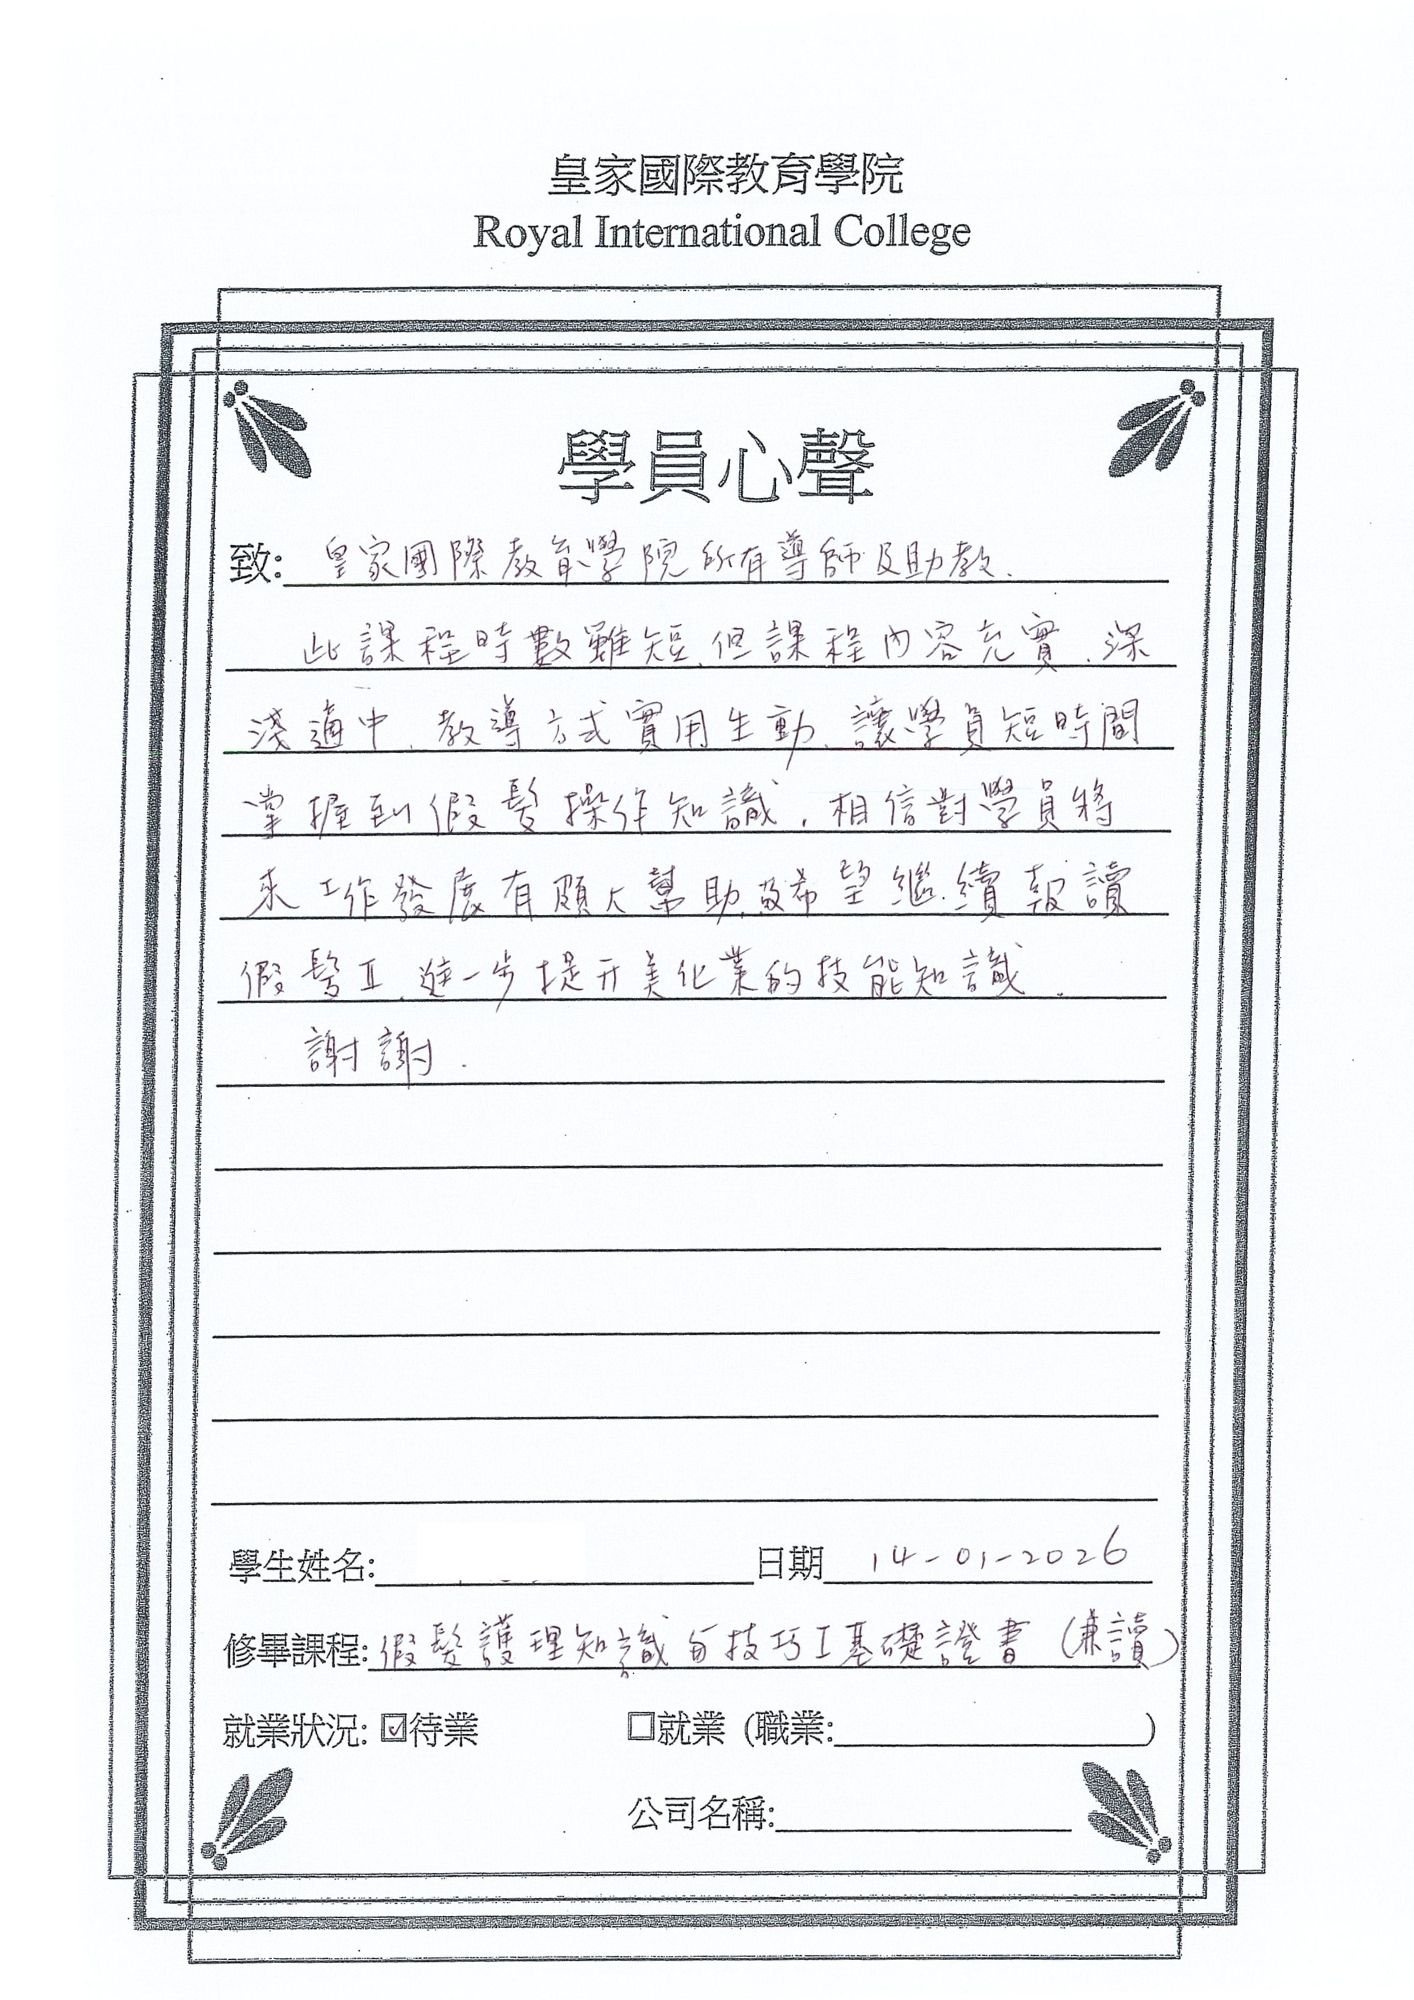 皇家國際教育學院
Royal International College
學員心聲
致: 皇家國際教育學院所有導師及助教.
此課程時數雖短,但課程內容充實,深
淺適中,教導方式實用生動,讓學員短時間
掌握到假髮操作知識,相信對學員將
來工作發展有頗大幫助,故希望繼續報讀
假髮II,進一步提升美化業的技能知識.
謝謝.
學生姓名: 日期 14-01-2026
修畢課程: 假髮護理知識與技巧I基礎證書(兼讀)
就業狀況: ☑待業 □就業 (職業: )
公司名稱: